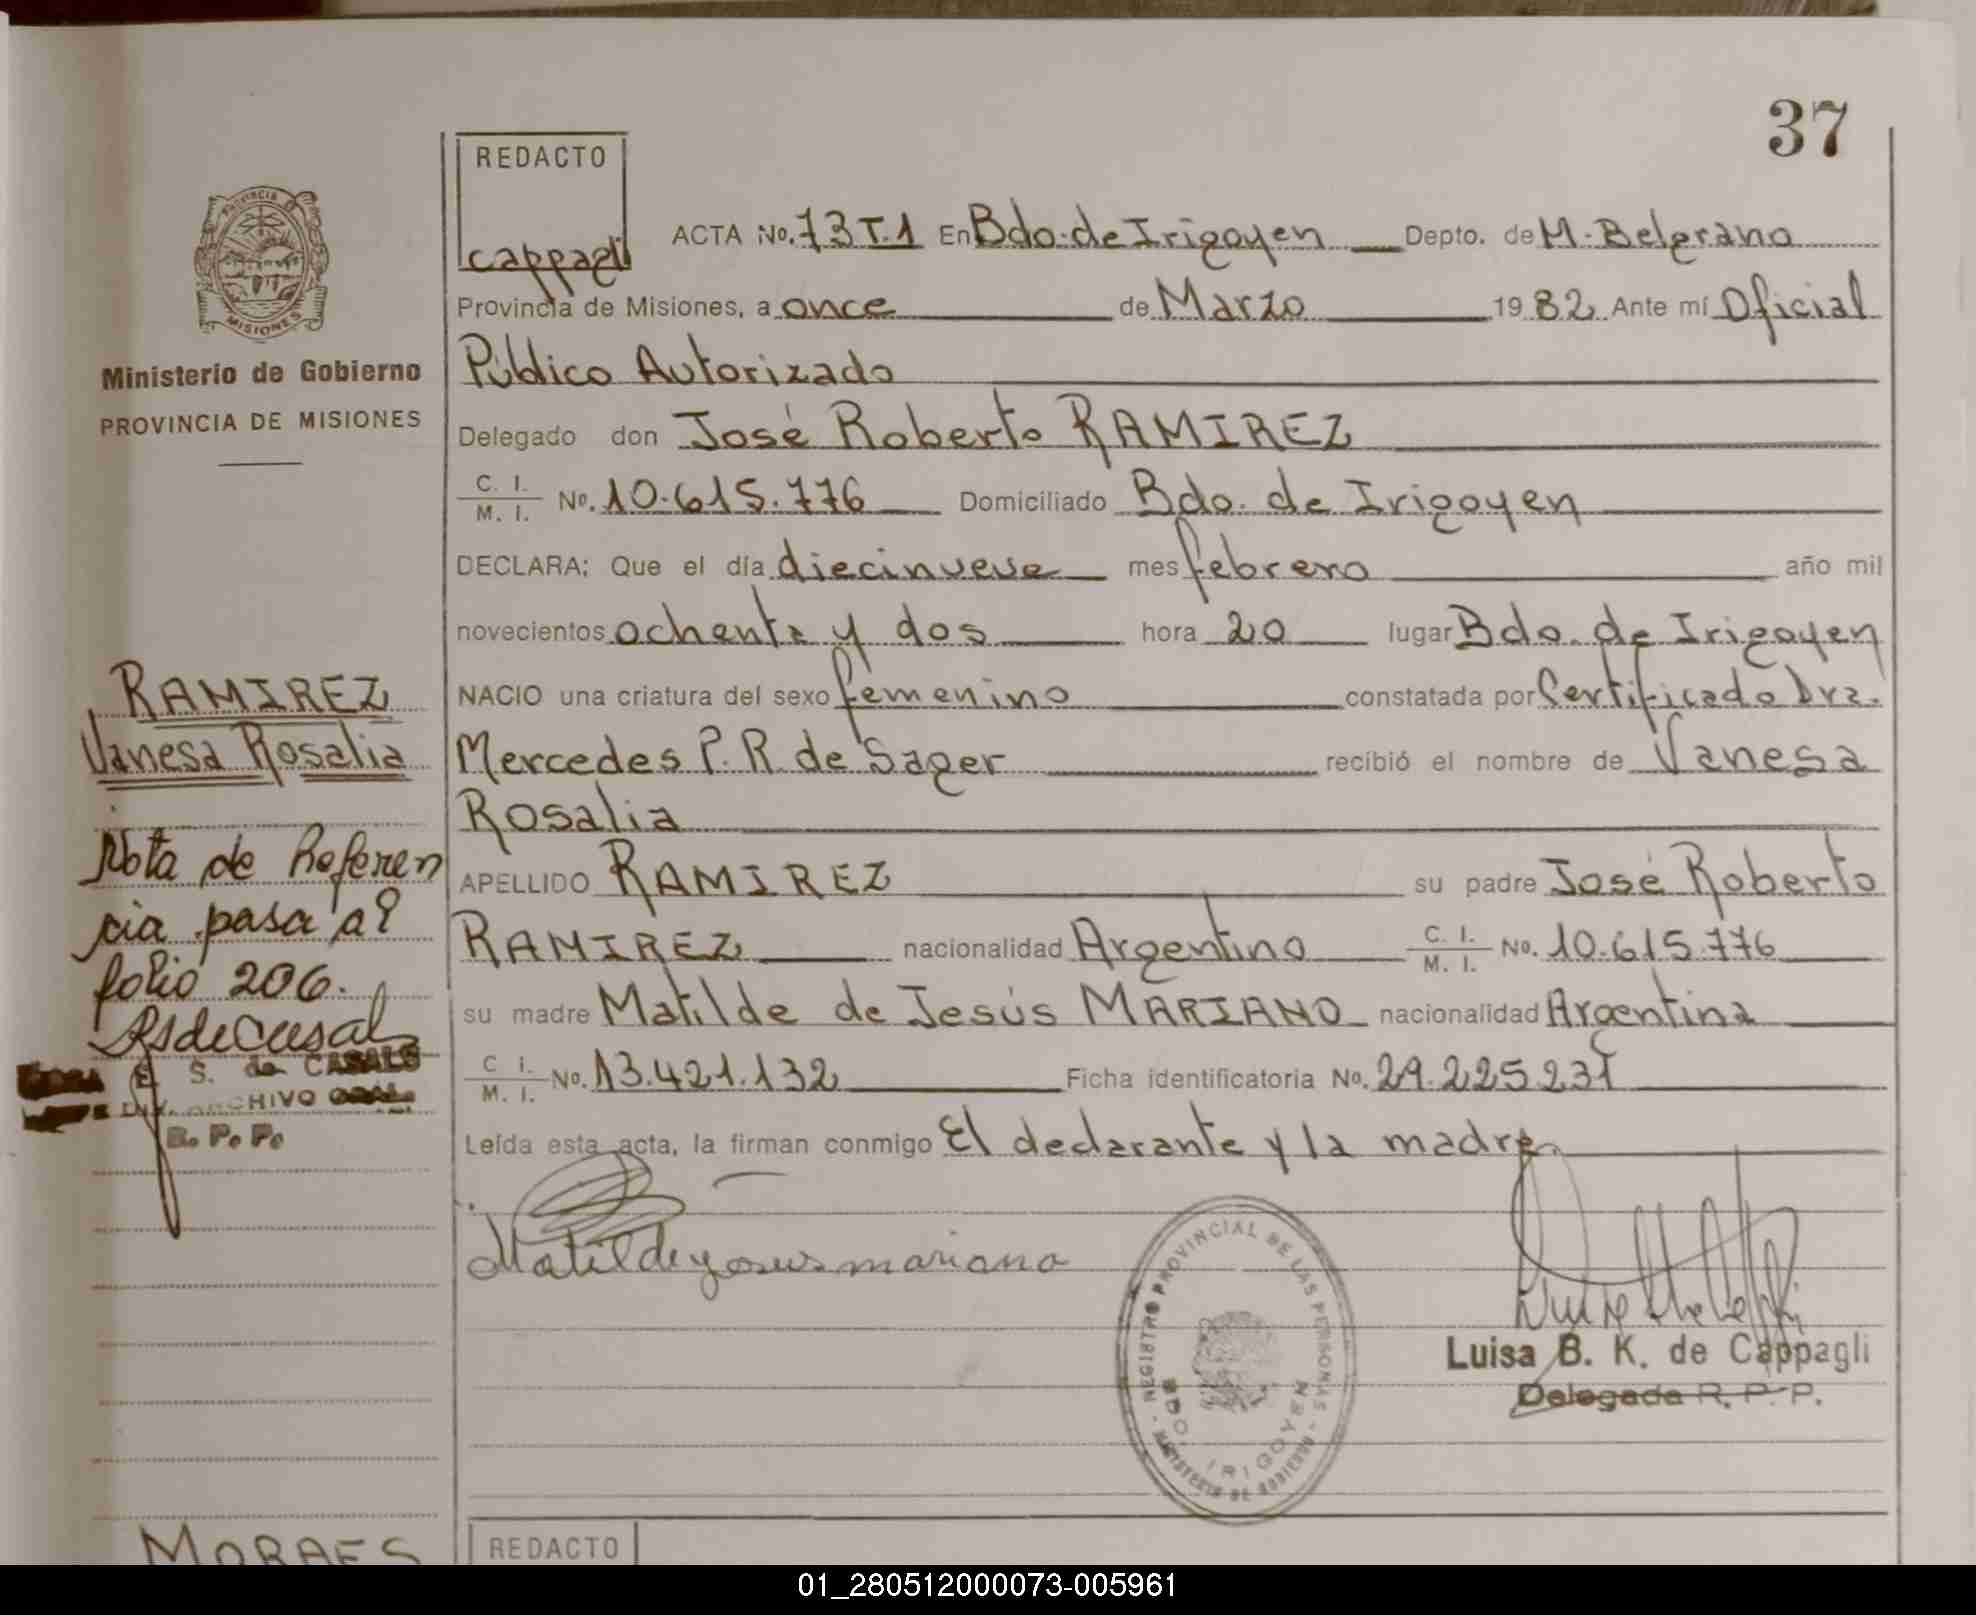 37
REDACTO
cappagli
ACTA No. 73 T.1 En Bdo. de Irigoyen Depto. de M. Belgrano
Provincia de Misiones, a once de Marzo 1982 Ante mí Oficial
Público Autorizado
Delegado don José Roberto RAMIREZ
C. I. / M. I. No. 10.615.776 Domiciliado Bdo. de Irigoyen
DECLARA: Que el día diecinueve mes febrero año mil
novecientos ochenta y dos hora 20 lugar Bdo. de Irigoyen
NACIO una criatura del sexo femenino constatada por Certificado Dra.
Mercedes P. R. de Sager recibió el nombre de Vanesa
Rosalia
APELLIDO RAMIREZ su padre José Roberto
RAMIREZ nacionalidad Argentino C. I. / M. I. No. 10.615.776
su madre Matilde de Jesús MARIANO nacionalidad Argentina
C. I. / M. I. No. 13.421.132 Ficha identificatoria No. 29.225231
Leída esta acta, la firman conmigo El declarante y la madre.
Matilde yesus mariano
REGISTRO PROVINCIAL DE LAS PERSONAS
MINISTERIO DE GOBIERNO
BDO IRIGOYEN
Luisa B. K. de Cappagli
Delegada R. P. P.
PROVINCIA
MISIONES
Ministerio de Gobierno
PROVINCIA DE MISIONES
RAMIREZ
Vanesa Rosalia
Nota de Referen
cia pasa al
folio 206.
S. de CASALS
DIV. ARCHIVO GRAL.
R. P. P.
MORAES
REDACTO
01_280512000073-005961